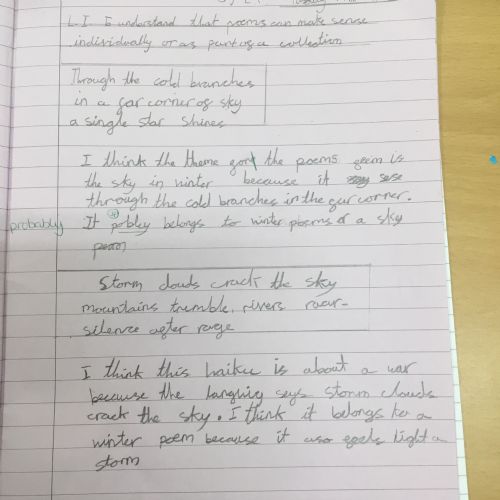 L.I. I understand that poems can make sense
individually or as part of a collection
Through the cold branches
in a far corner of sky
a single star shines
I think the theme for the poems is
the sky in winter because it ses
through the cold branches in the far corner.
probably
It pobley belongs to winter poems of a sky
poem
Storm clouds crack the sky
mountains tremble, rivers roar-
silence after rage
I think this haiku is about a war
because the says storm clouds
crack the sky. I think it belongs to a
winter poem because it feels light a
storm